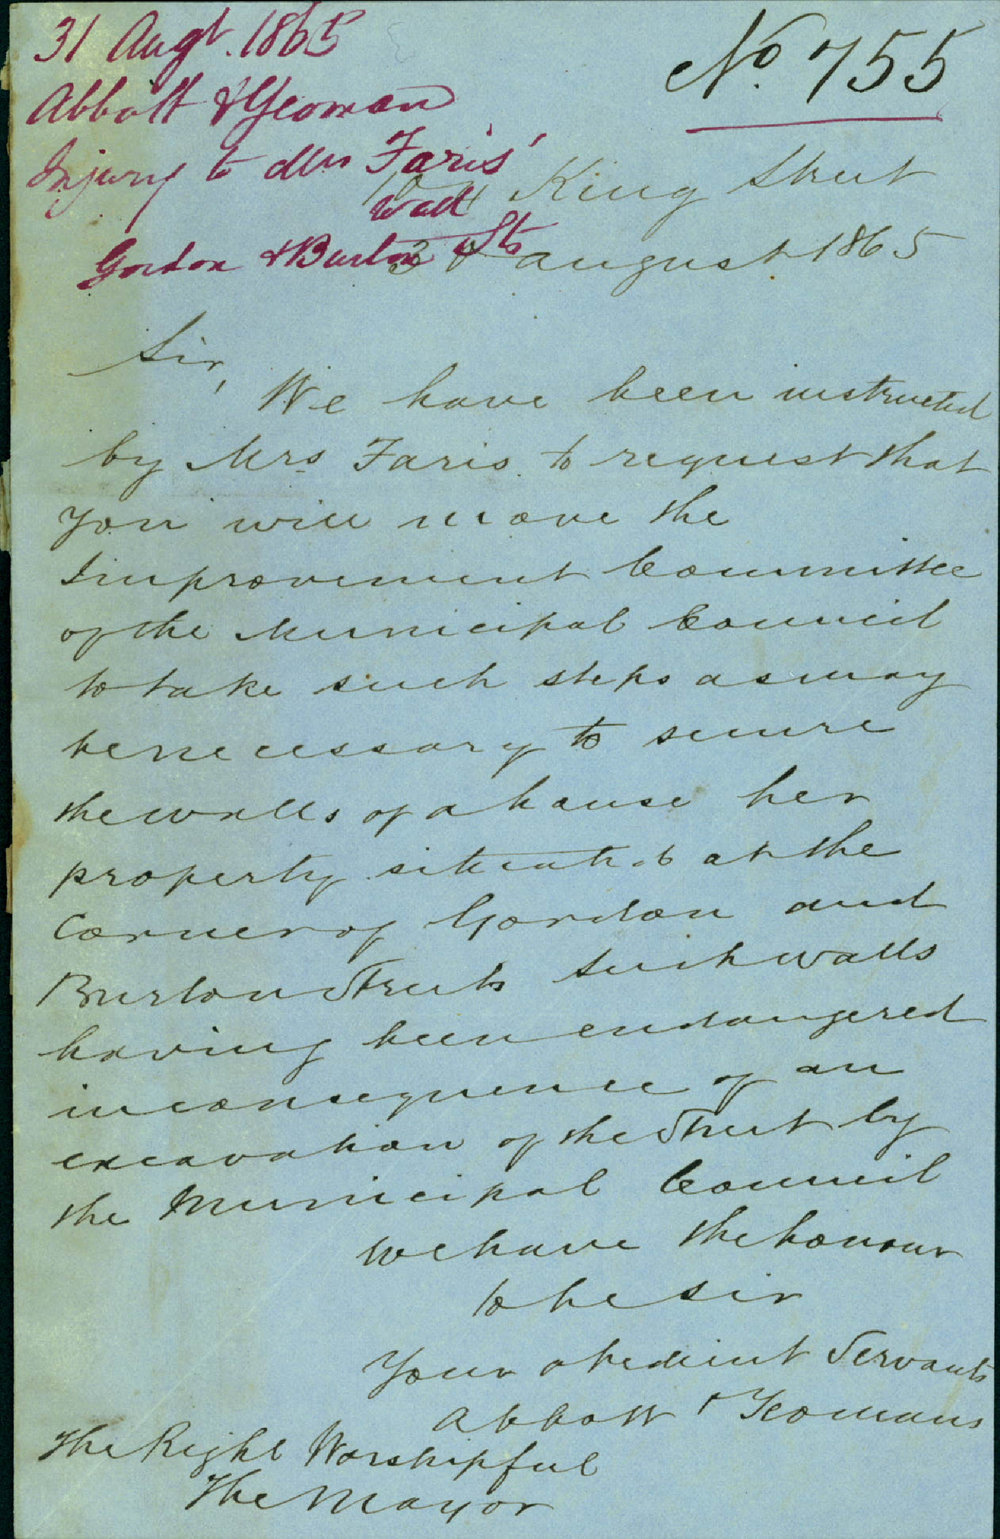 31 Augt. 1865
No. 755
Abbott & Yeoman
Injury to Mrs Faris'
Wall
Gordon & Burton Sts
King Street
August 1865
Sir,
We have been instructed
by Mrs Faris to request that
you will move the
Improvement Committee
of the Municipal Council
to take such steps as may
be necessary to secure
the walls of a house her
property situated at the
Corner of Gordon and
Burton Streets such walls
having been endangered
in consequence of an
excavation of the Street by
the Municipal Council
We have the honour
to be Sir
Your obedient Servants
Abbott & Yeomans
The Right Worshipful
The Mayor